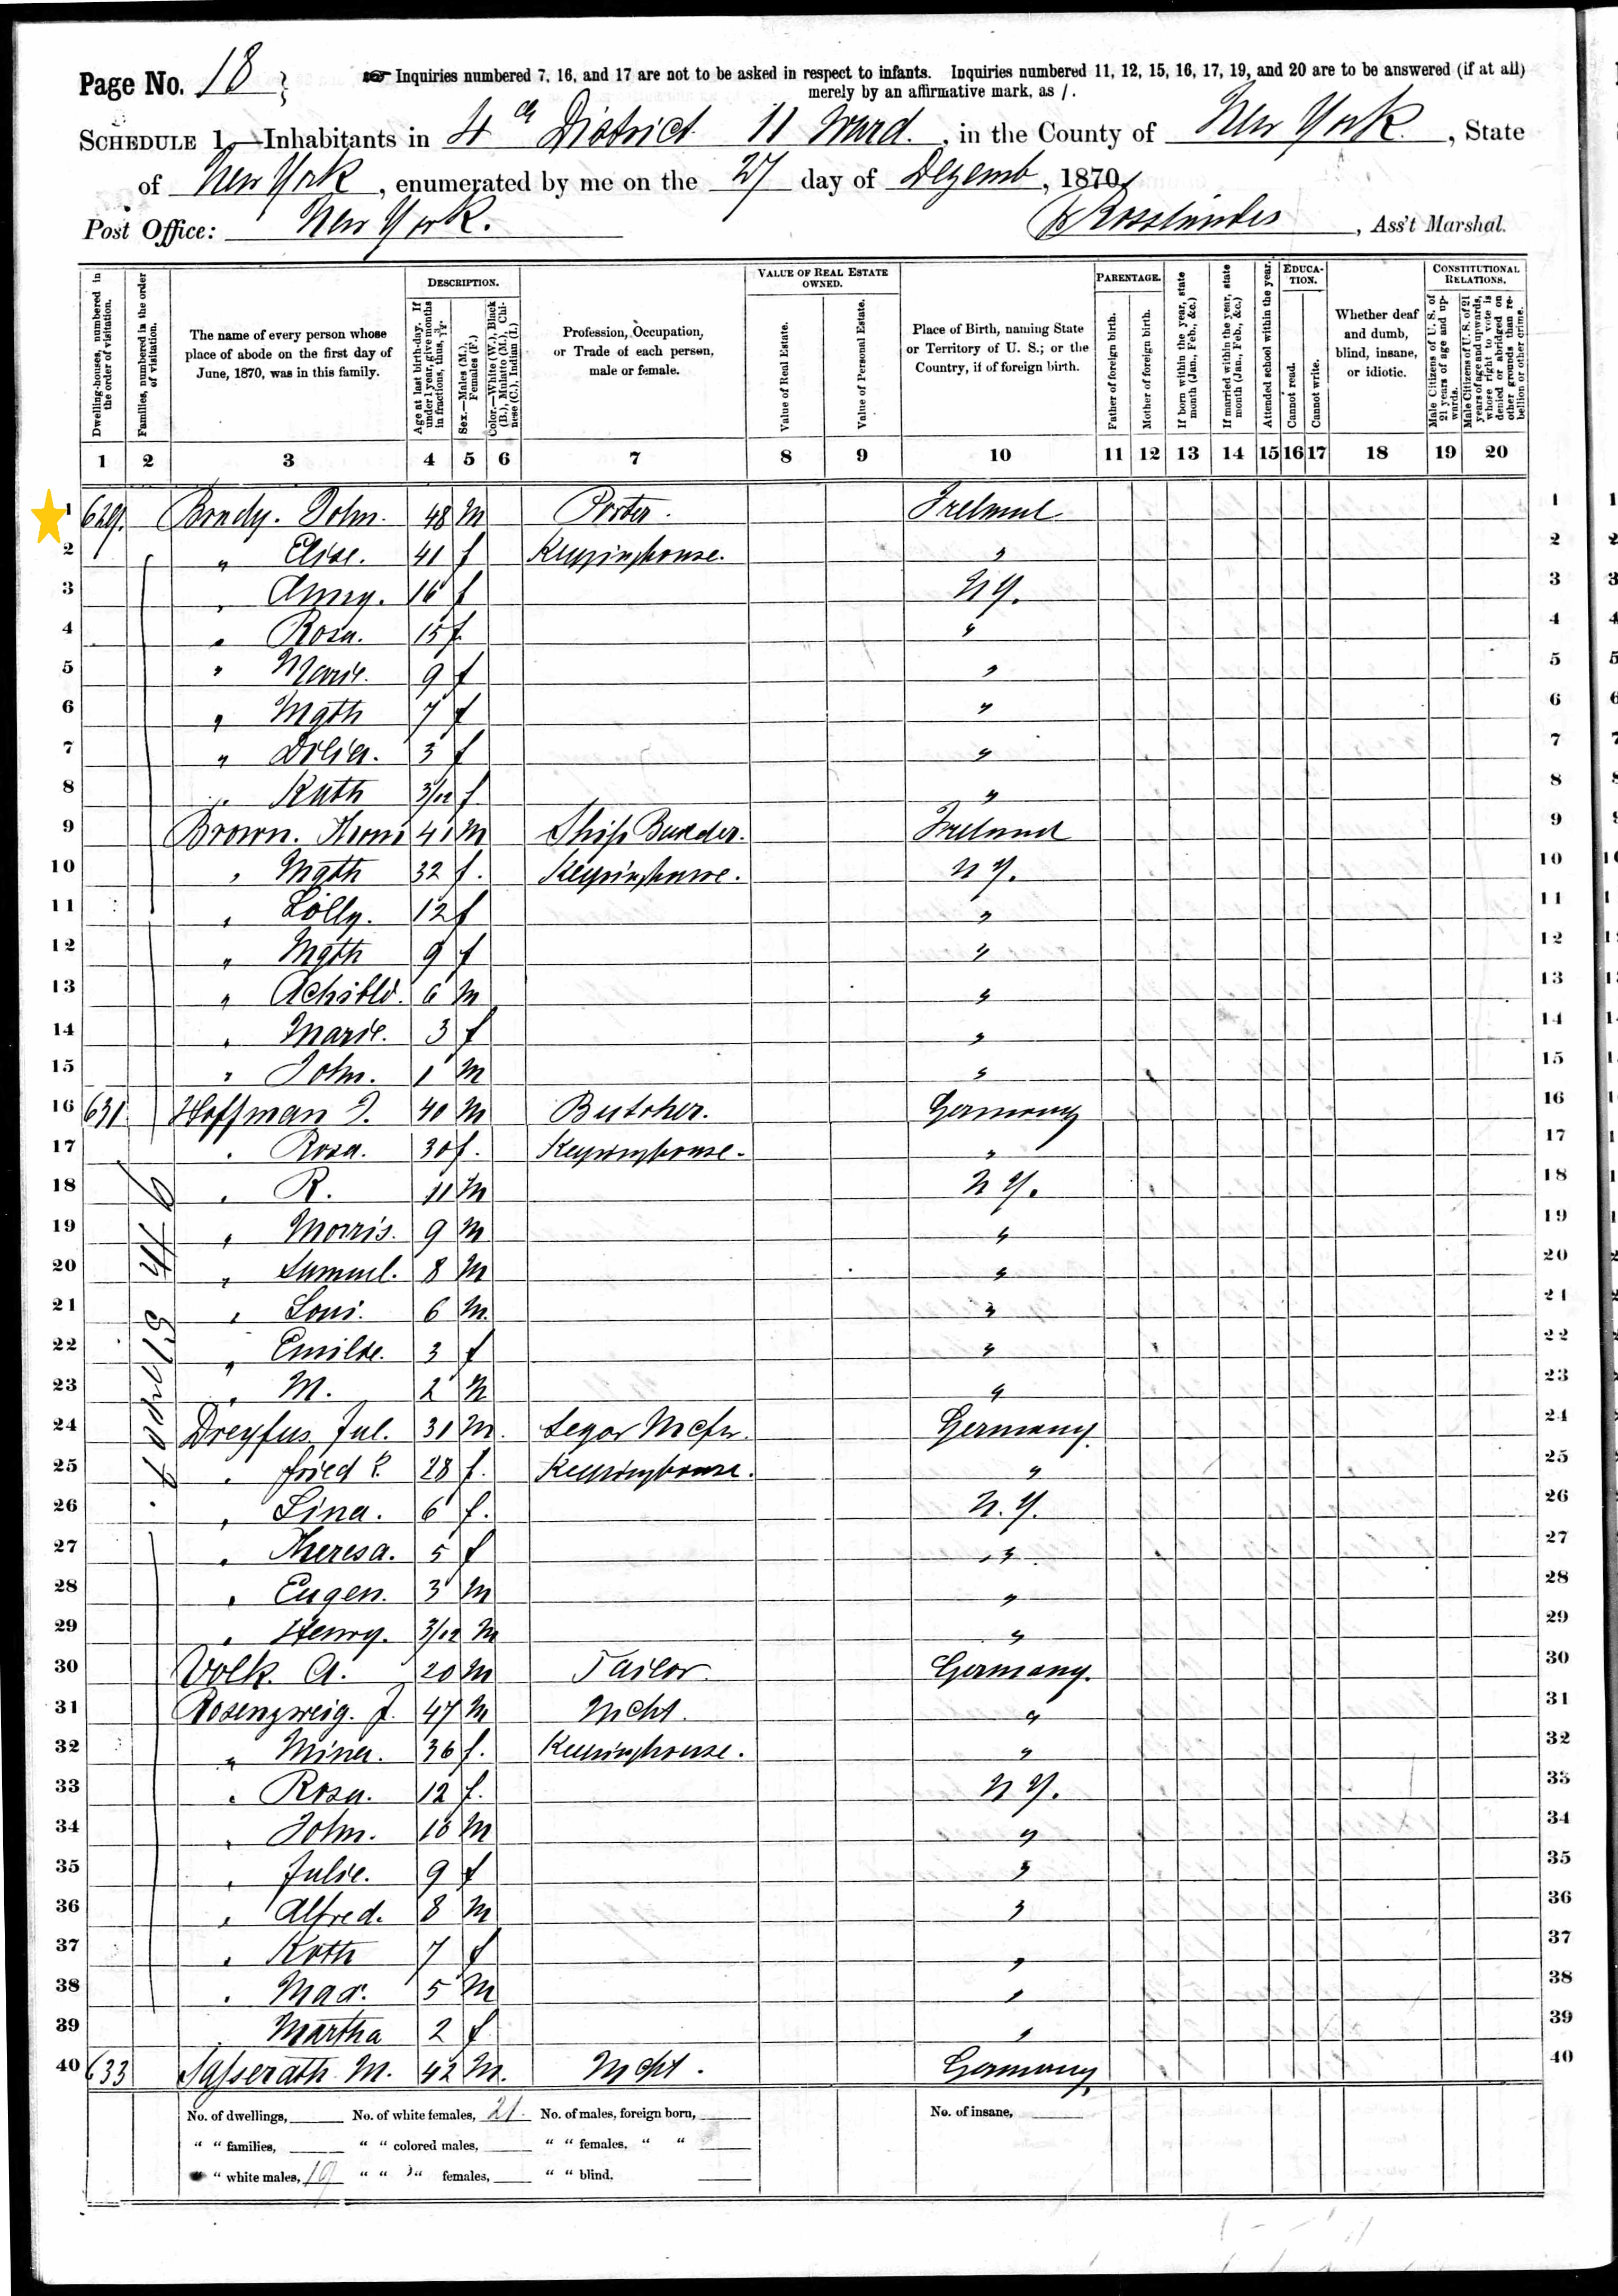 Page No. 18
Inquiries numbered 7, 16, and 17 are not to be asked in respect to infants. Inquiries numbered 11, 12, 15, 16, 17, 19, and 20 are to be answered (if at all)
merely by an affirmative mark, as /.
SCHEDULE 1.—Inhabitants in 4th District 11 Ward., in the County of New York, State
of New York, enumerated by me on the 27 day of Dezemb, 1870
Post Office: New York. , Ass't Marshal.
Dwelling-houses, numbered in the order of visitation.
Families, numbered in the order of visitation.
The name of every person whose place of abode on the first day of June, 1870, was in this family.
DESCRIPTION.
Age at last birth-day. If under 1 year, give months in fractions, thus, 3/12.
Sex.—Males (M.), Females (F.)
Color.—White (W.), Black (B.), Mulatto (M.), Chinese (C.), Indian (I.)
Profession, Occupation, or Trade of each person, male or female.
VALUE OF REAL ESTATE OWNED.
Value of Real Estate.
Value of Personal Estate.
Place of Birth, naming State or Territory of U. S.; or the Country, if of foreign birth.
PARENTAGE.
Father of foreign birth.
Mother of foreign birth.
If born within the year, state month (Jan., Feb., &c.)
If married within the year, state month (Jan., Feb., &c.)
Attended school within the year.
EDUCATION.
Cannot read.
Cannot write.
Whether deaf and dumb, blind, insane, or idiotic.
CONSTITUTIONAL RELATIONS.
Male Citizens of U. S. of 21 years of age and upwards.
Male Citizens of U. S. of 21 years of age and upwards, whose right to vote is denied or abridged on other grounds than rebellion or other crime.
1 2 3 4 5 6 7 8 9 10 11 12 13 14 15 16 17 18 19 20
1 629. John. 48 M Porter. 1
2 " Elise. 41 f Keepinghouse. " 2
3 " 16 f N Y. 3
4 " Rosa. 15 f " 4
5 " Marie. 9 f " 5
6 " Mgth 7 f " 6
7 " 3 f " 7
8 " Kath 3/12 f " 8
9 Brown. 41 M Ship Ireland 9
10 " Mgth 32 f. Keepinghouse. N Y. 10
11 " Lolly. 12 f " 11
12 " Mgth 9 f " 12
13 " 6 M " 13
14 " Marie. 3 f " 14
15 " John. 1 M " 15
16 631. Hoffman J. 40 M Butcher. Germany 16
17 " Rosa. 30 f. Keepinghouse. " 17
18 " R. 11 M N Y. 18
19 " Morris. 9 M " 19
20 " Samuel. 8 M " 20
21 " Loui. 6 M. " 21
22 " Emilie. 3 f " 22
23 " M. 2 M " 23
24 Dreyfus Jul. 31 M. Segar Germany. 24
25 " 28 f. Keepinghouse. " 25
26 " Lina. 6 f. N. Y. 26
27 " Theresa. 5 f " 27
28 " Eugen. 3 M " 28
29 " Henry. 3/12 M " 29
30 Volk. A. 20 M Tailor. Germany. 30
31 Rosenzweig. J. 47 M Mcht. " 31
32 " Mina. 36 f. Keepinghouse. " 32
33 " Rosa. 12 f. N Y. 33
34 " John. M " 34
35 " Julie. 9 f " 35
36 " Alfred. 8 M " 36
37 " Kath 7 f " 37
38 " Max. 5 M " 38
39 Martha 2 f " 39
40 633 Sasserath M. 42 M. Mcht. Germany 40
No. of dwellings, No. of white females, 21. No. of males, foreign born, No. of insane,
" " families, " " colored males, " " females, " "
" " white males, 19 " " " females, " " blind,